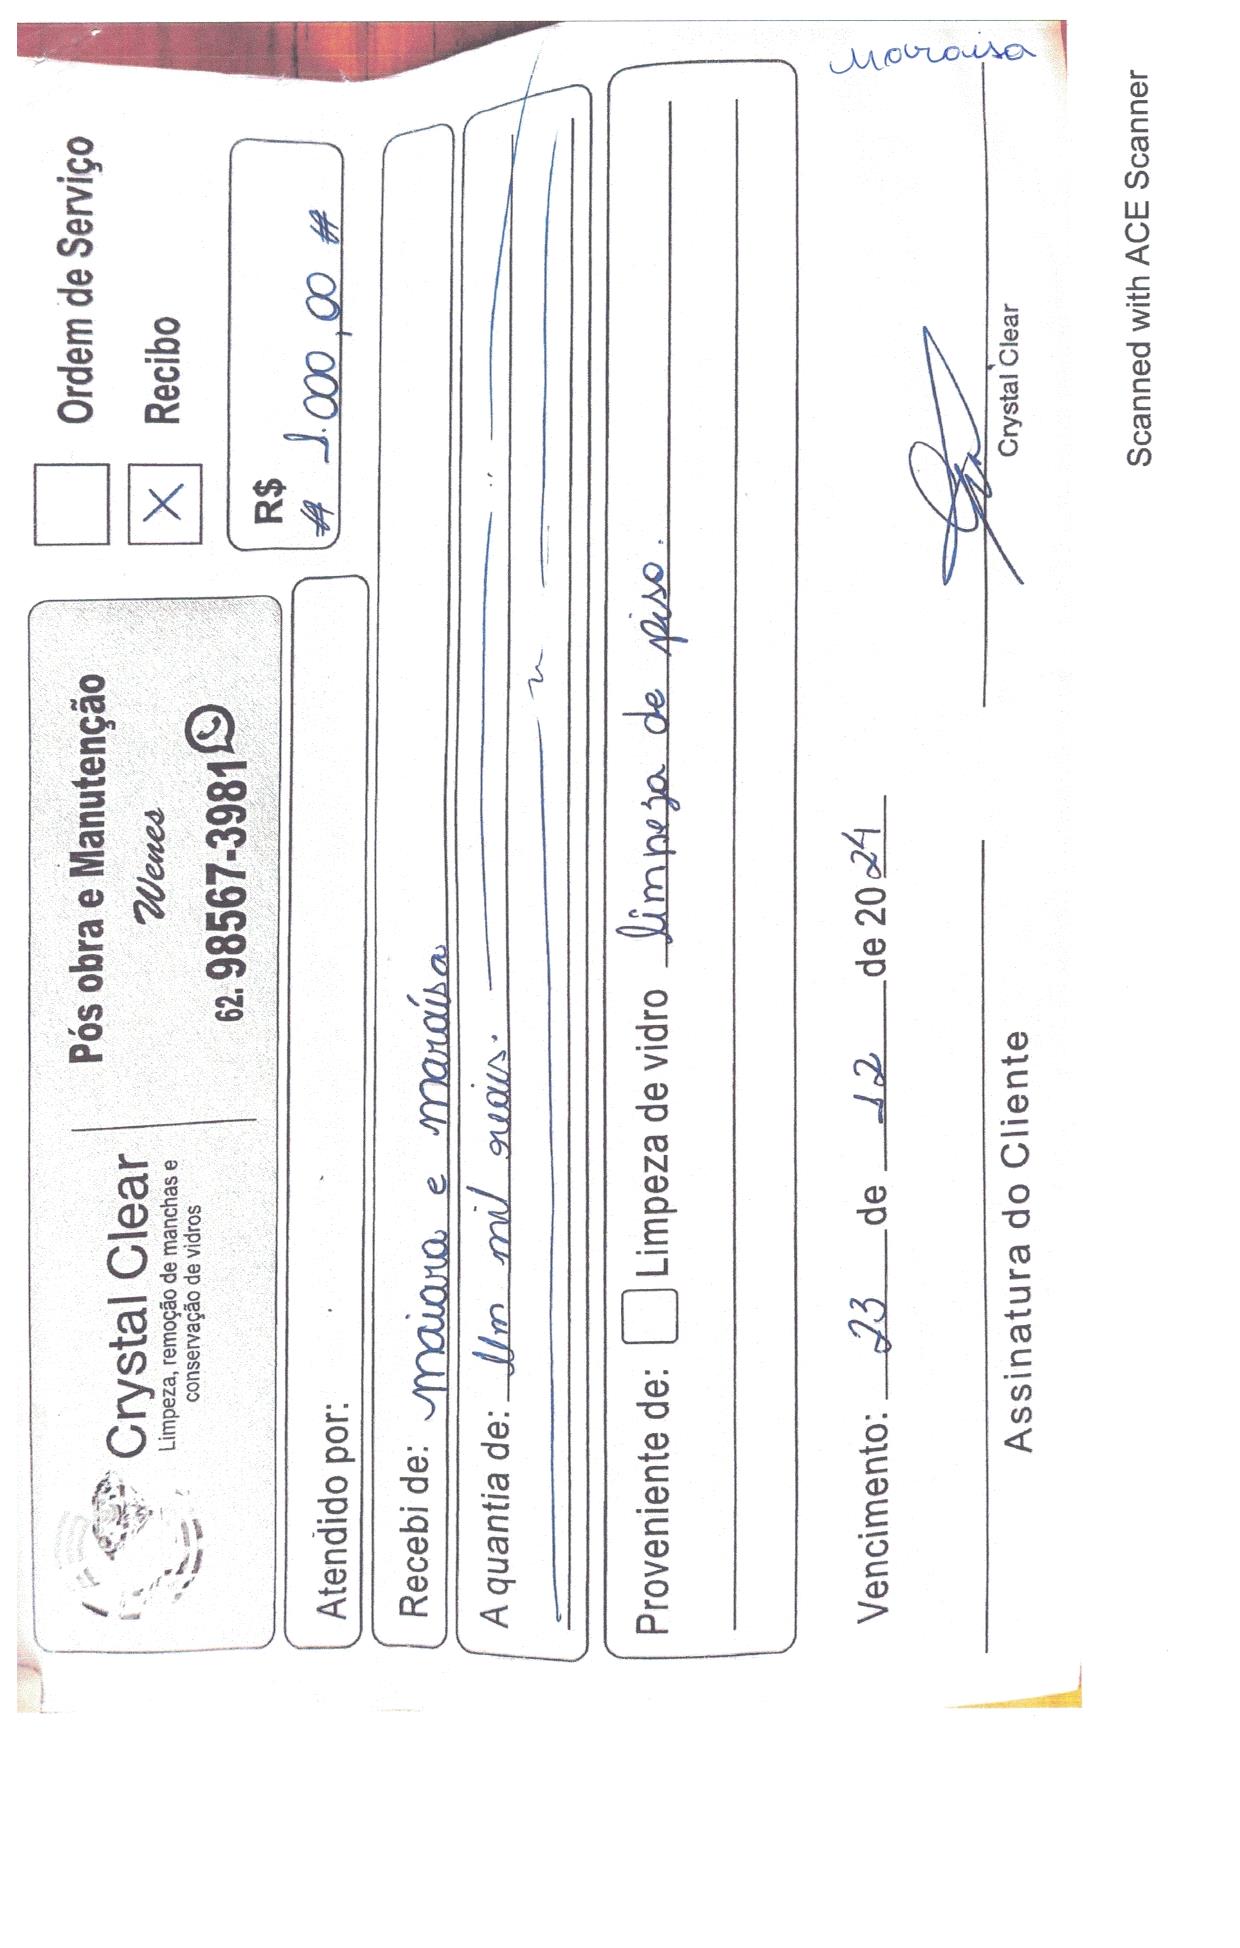 Crystal Clear
Limpeza, remoção de manchas e
conservação de vidros
Pós obra e Manutenção
Wenes
62. 98567-3981
Ordem de Serviço
X Recibo
R$
# 1.000,00 #
Atendido por:
Recebi de: maiara e maraísa
A quantia de: Um mil reais.
Proveniente de: Limpeza de vidro limpeza de piso.
Vencimento: 23 de 12 de 2024
Maraisa
Assinatura do Cliente
Crystal Clear
Scanned with ACE Scanner